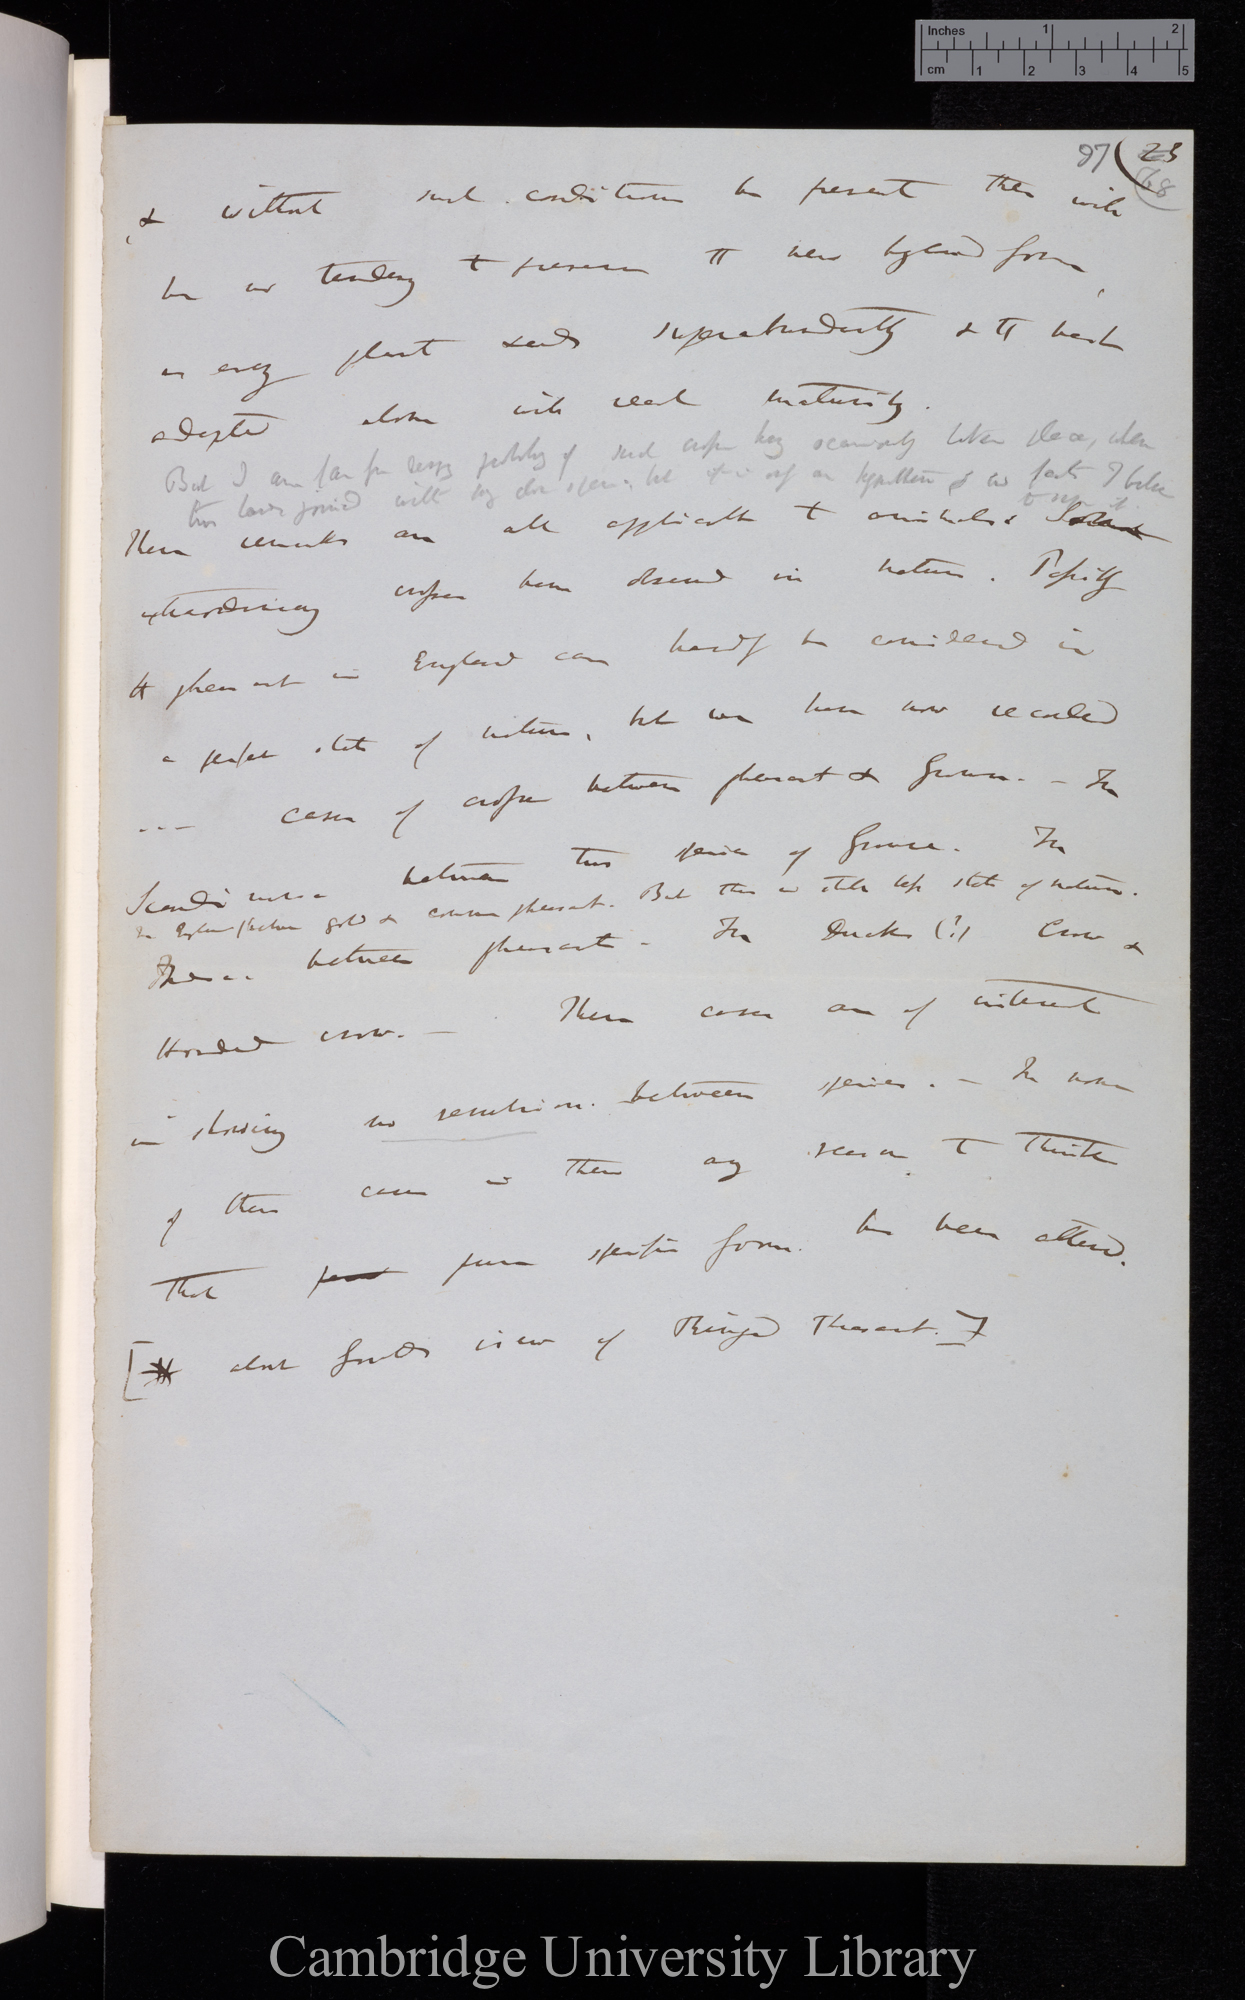 Inches 1 2
cm 1 2 3 4 5
97 (23
68
& without such conditions be present there will
be no tendency to preserve the new hybrid form,
as every plant seeds superabundantly & the best
adapted alone will reach maturity.
But I am far from denying probability of such crosses having occasionally taken place, when
two land joined with very close species; but on hypothesis & no facts I believe
to support it.
These remarks are all applicable to animals: & Some
extraordinary crosses have been observed in nature. Possibly
the pheasant in England can hardly be considered in
a perfect state of nature, but we have now recorded
--- cases of crosses between pheasant & Grouse. – In
Scandinavia between two species of Grouse. In
In England between gold & common pheasant. But this is still less state of nature.
between pheasant – In Ducks (?) Crow &
Hooded crow. – These cases are of interest
in showing no repulsion between species. – In none
of these cases is there any reason to think
that pure specific form has been altered.
[ about Goulds view of Ringed Pheasant.]
Cambridge University Library